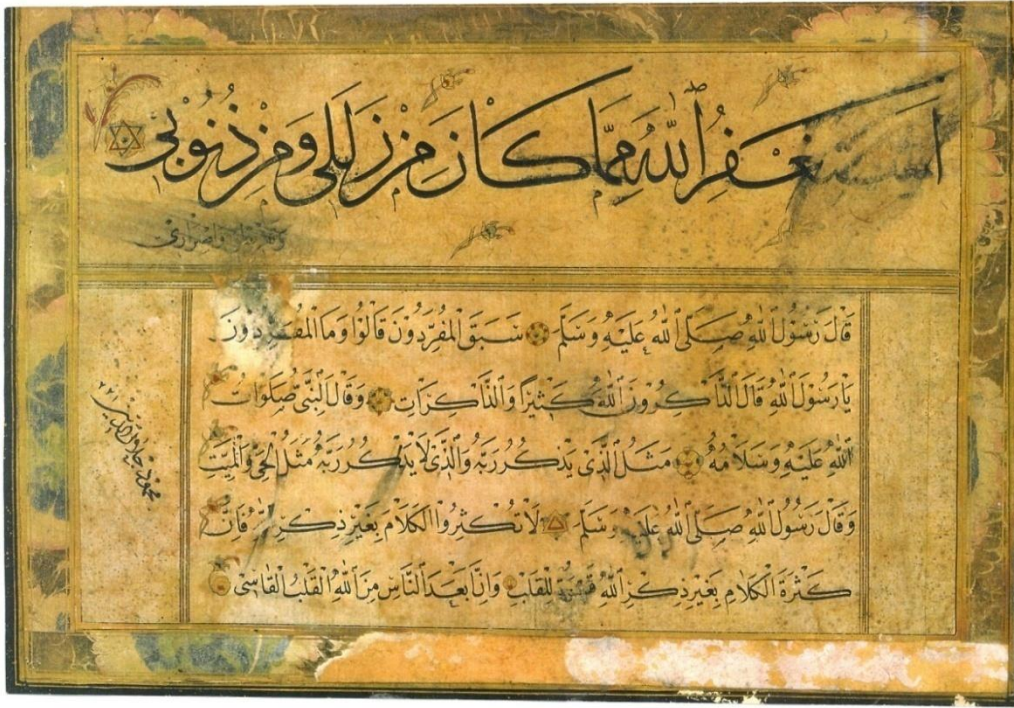 استغفر الله مما كان من زللي ومن ذنوبي
وتفريطي واصراري
قال رسول الله صلى الله عليه وسلم سبق المفردون قالوا وما المفردون
يا رسول الله قال الذاكرون الله كثيرا والذاكرات وقال النبي صلوات
الله عليه وسلامه مثل الذي يذكر ربه والذي لا يذكر ربه مثل الحي والميت
وقال رسول الله صلى الله عليه وسلم لا تكثروا الكلام بغير ذكر الله فان
كثرة الكلام بغير ذكر الله قسوة للقلب وان ابعد الناس من الله القلب القاسي
محمود جلال الدين